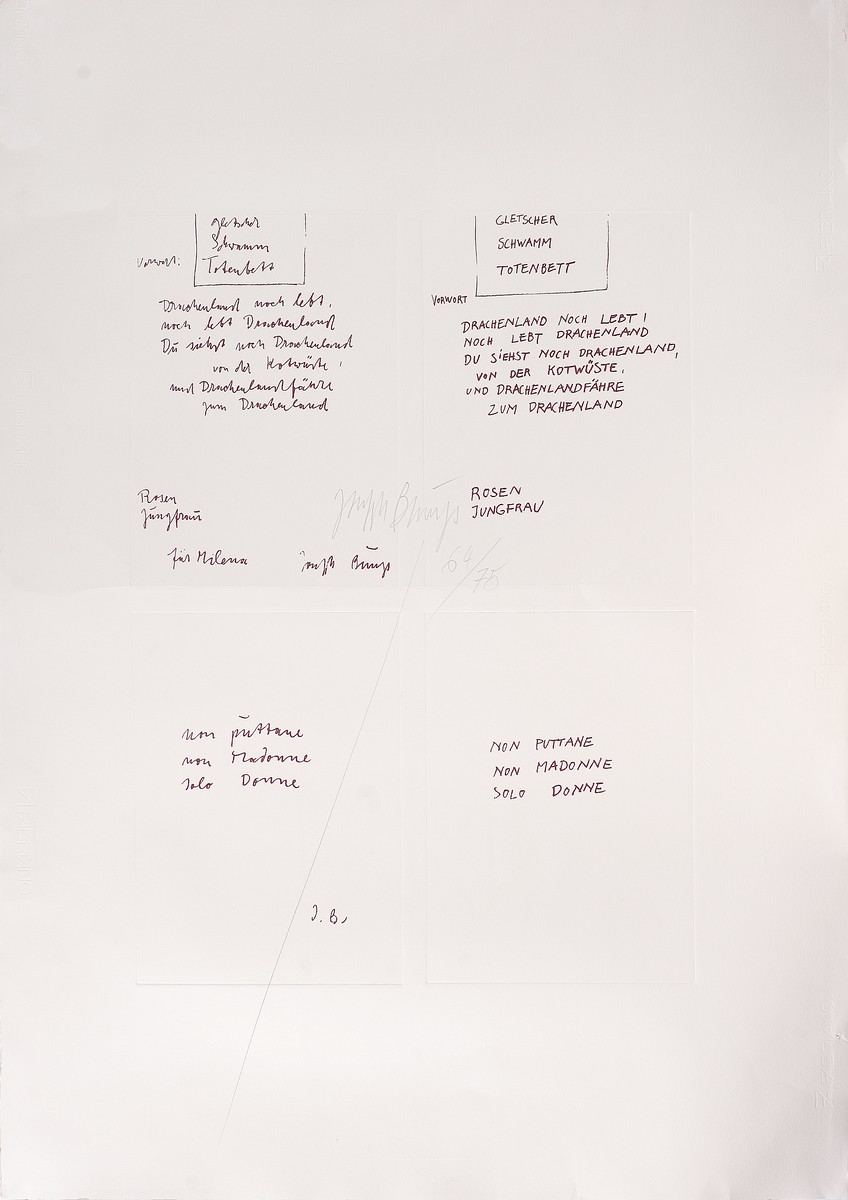 gletscher
Schwamm
Totenbett
Vorwort:
Drachenland noch lebt,
noch lebt Drachenland
Du siehst noch Drachenland
von der Kotwüste,
und Drachenlandfähre
zum Drachenland
Rosen
Jungfrau
für Milena Joseph Beuys
GLETSCHER
SCHWAMM
TOTENBETT
VORWORT
DRACHENLAND NOCH LEBT!
NOCH LEBT DRACHENLAND
DU SIEHST NOCH DRACHENLAND,
VON DER KOTWÜSTE,
UND DRACHENLANDFÄHRE
ZUM DRACHENLAND
ROSEN
JUNGFRAU
Joseph Beuys
64/75
non puttane
non Madonne
solo Donne
J. B.
NON PUTTANE
NON MADONNE
SOLO DONNE